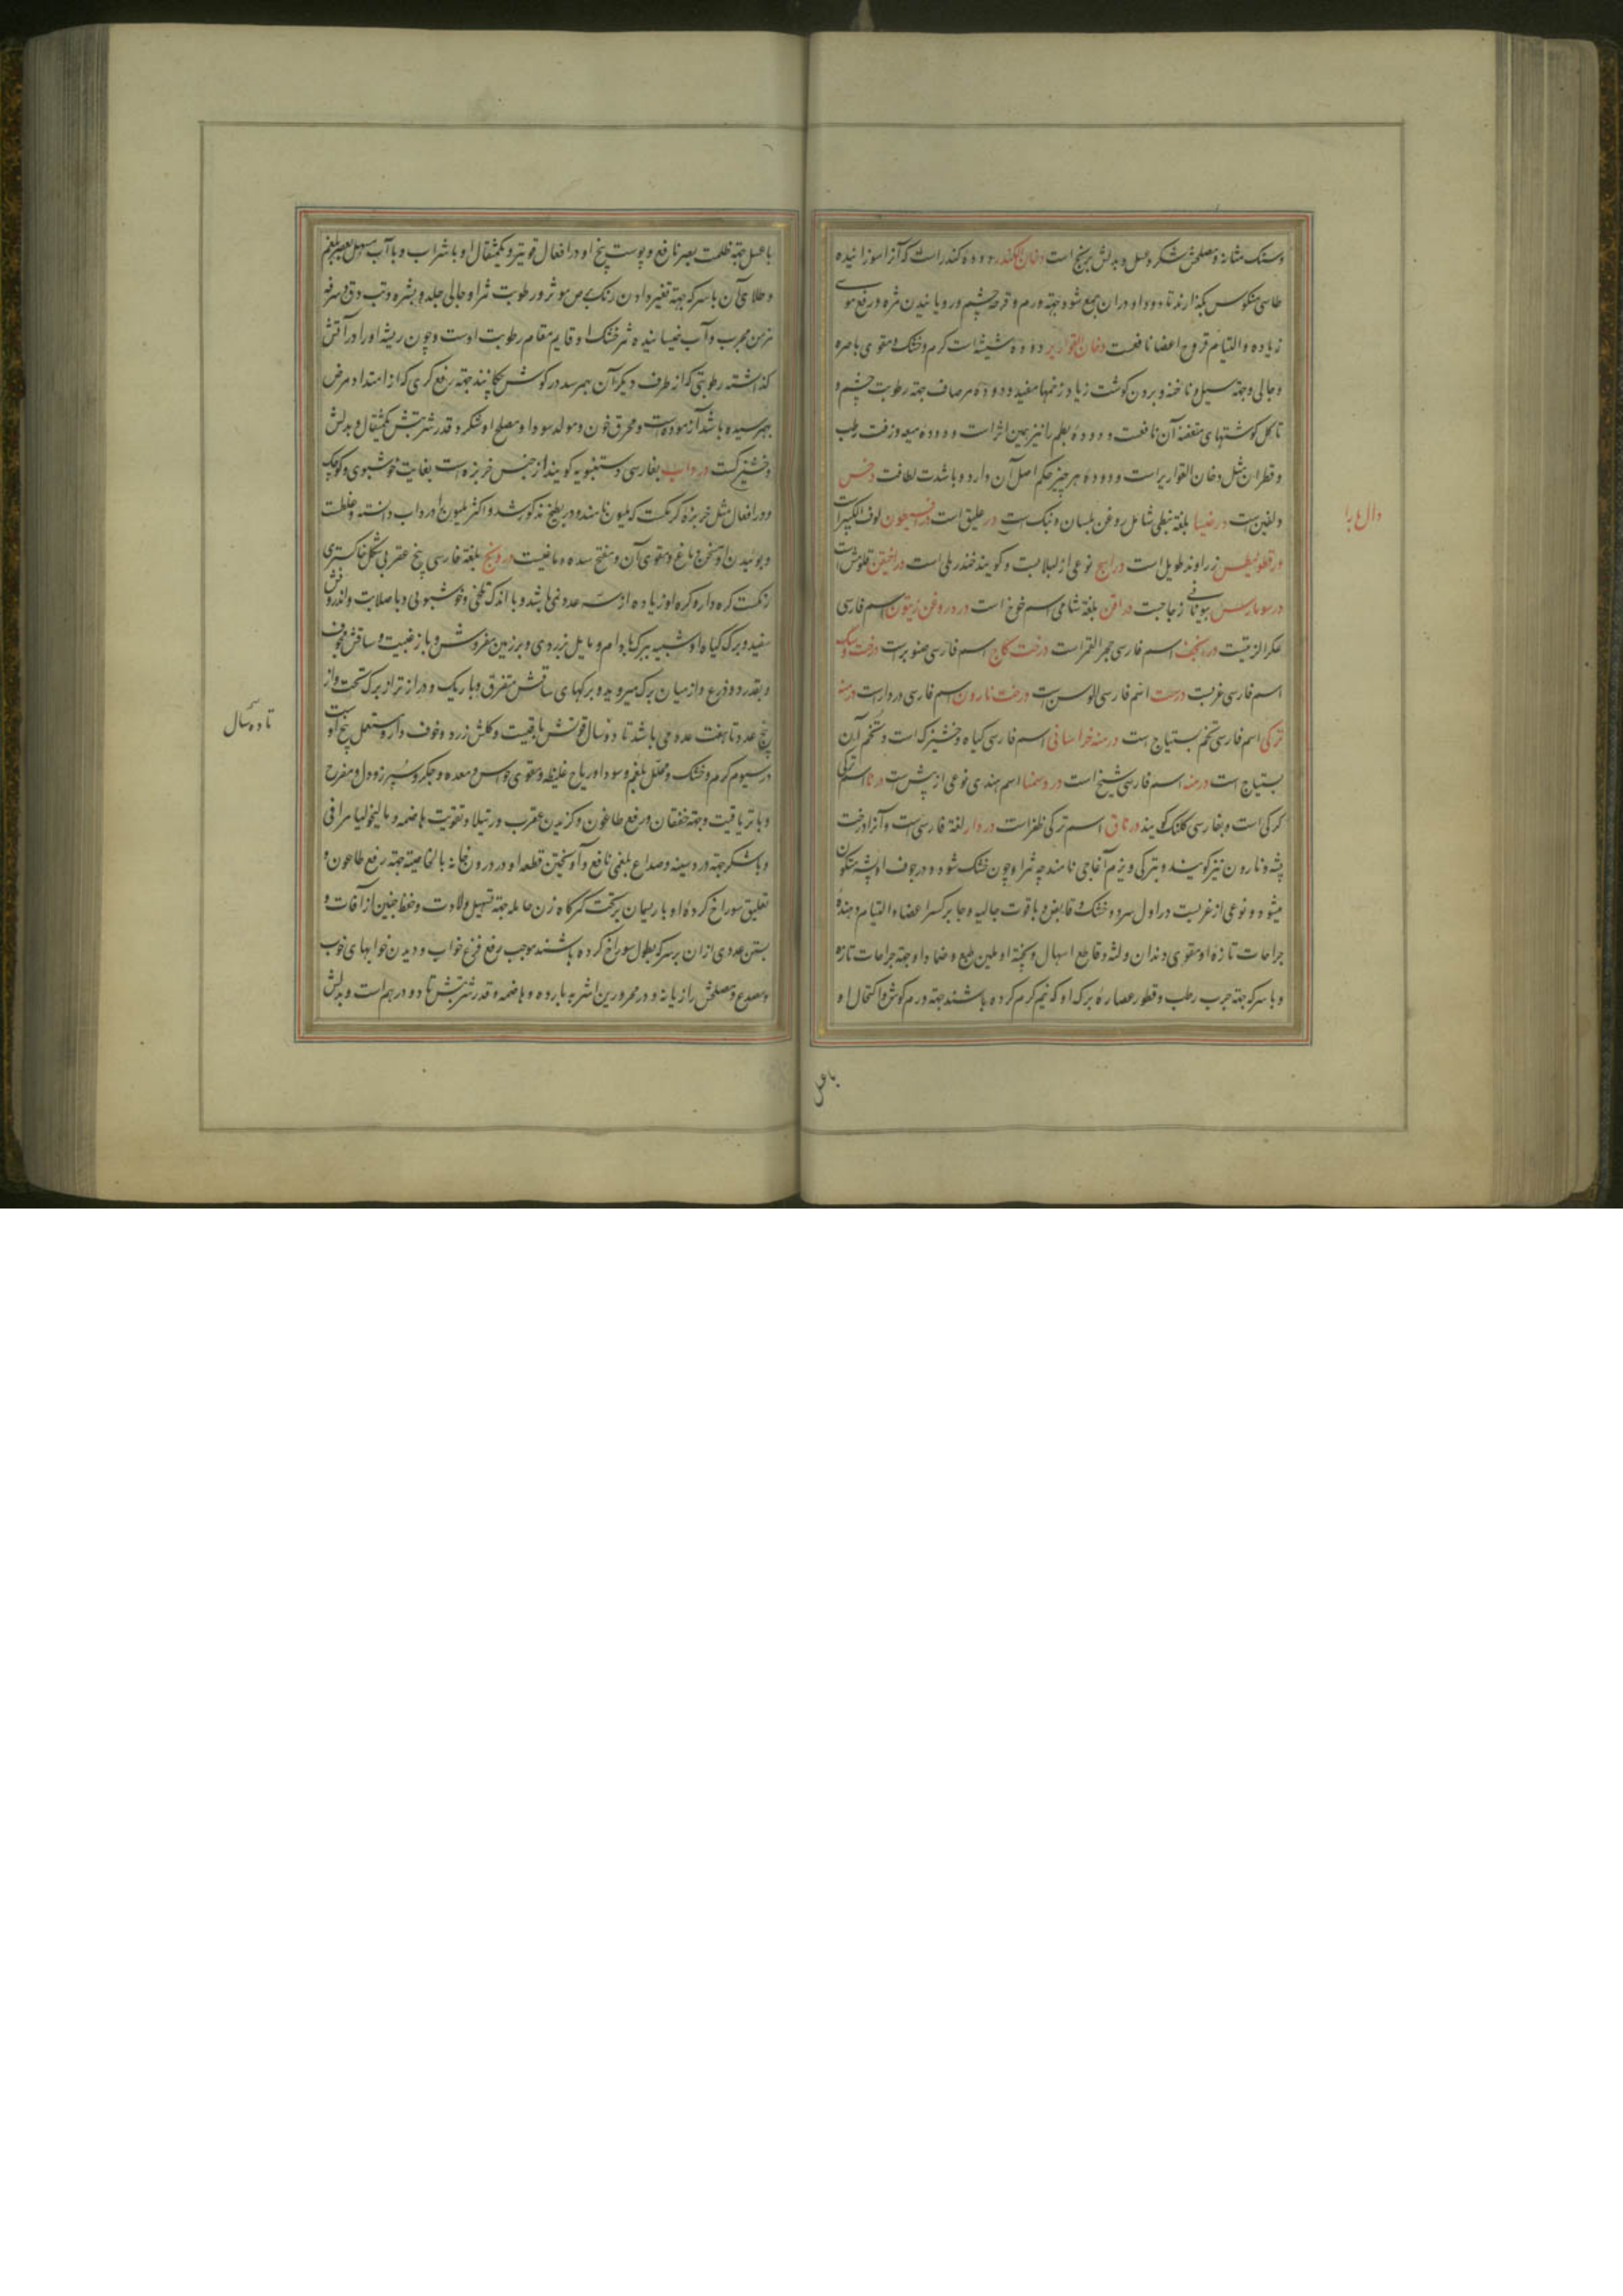 وسنک مثانه ومصلحش شکر وعسل وبدلش برنج است دخان الکندر دوده کندر است که آنرا سوزانیده
طاسی منکوس بکذارند تا دود او در ان جمع شود جهة ورم وقرحه چشم ورویانیدن مژه ورفع موی
زیاده والتیام قروح اعضا نافعست دخان القواریر دوده شیشه است کرم وخشک ومقوی باصره
وجالی وجهة سبل وناخنه وبردن کوشت زیاد زخمها مفید ودوده مرصاف جهة رطوبت چشم و
تاکل کوشتهای متعفنه آن نافعست ودوده بطم را نیز همین اثر است ودوده میعه وزفت رطب
وقطران مثل دخان القواریر است ودوده هر چیز حکم اصل آن دارد وبا شدت لطافت دخس
دلفین است درضیا بلغة نبطی شامل روغن بلسان ونبک است در علیق است لوف الکبیر است
زراوند طویل است درابج نوعی از لبلابست وکویند خندریلی است
بیونانی زجاجست دراقن بلغة شامی اسم خوخ است درد روغن زیتون اسم فارسی
عکر الزیتست اسم فارسی حجر القمر است درخت کاج اسم فارسی صنوبر است درخت
اسم فارسی غربست درخت نارون اسم فارسی دردار است درمنه
ترکی اسم فارسی تخم بستیاج است درمنه خراسانی اسم فارسی کیاه وخشیزک است وتخم آن
بستیاج است درمنه اسم فارسی شیخ است اسم هندی نوعی از یشب است درنا اسم ترکی
کرکی است وبفارسی کلنک کویند درناق اسم ترکی ظفر است دردار لغة فارسی است وآنرا درخت
پشه ونارون نیز کویند وبترکی ویزم آغاجی نامند چه ثمر او چون خشک شود ودر جوف او پشه متکون
میشود ونوعی از غربست در اول سرد وخشک وقابض وبا قوت جالیه وجابر کسر اعضا والتیام دهنده
جراحات تازه او مقوی دندان ولثه وقاطع اسهال وپخته او ملین طبع وضماد او جهة جراحات تازه
وبا سرکه جهة جرب رطب وقطور عصاره برک او که نیم کرم کرده باشند جهة ورم کوش واکتحال او
با عسل
دال با را
با عسل جهة ظلمت بصر نافع وپوست بیخ او در افعال قویتر ویکمثقال او با شراب وبا آب مسهل بلغم
وطلای آن با سرکه جهة تغییر دادن رنک برص موثر ورطوبت ثمر او جالی جلد وبشره وتب دق وسرفه
مزمن مجرب وآب خیسانیده ثمر خشک او قایم مقام رطوبت اوست وچون ریشه او را در آتش
کذاشته رطوبتی که از طرف دیکر آن بهم رسد در کوش چکانند جهة رفع کری که از امتداد مرض
بهم رسیده باشد آزموده است ومحرق خون ومولد سودا ومصلح او شکر وقدر شربتش یکمثقال وبدلش
وخشیزک است درداب بفارسی دستنبویه کویند از جنس خربزه است بغایت خوشبوی وکوچک
ودر افعال مثل خربزه کرمکست که بلیون نامند ودر بطیخ مذکور شد واکثر بلیون را درداب دانسته وغلطست
وبوئیدن او مسخن دماغ ومقوی آن ومفتح سده دماغیست درونج بلغة فارسی بیخ عقربی شکل خاکستری
رنکست کره دار وکره او زیاده از سه عدد نمی باشد وبا اندک تلخی وخوشبوئی وبا صلابت واندرونش
سفید وبرک کیاه او شبیه ببرک بادام ومایل بزردی وبر زمین مفروش وبا زغبیت وساقش مجوف
وبقدر دو ذرع واز میان برک میروید وبرکهای ساقش متفرق وباریک ودرازتر از برک تحت واز
پنج عدد تا هفت عدد می باشد تا دو سال قوتش باقیست وکلش زرد ومجوف دارد ومستعمل بیخ اوست
در سیوم کرم وخشک ومحلل بلغم وسودا وریاح غلیظه ومقوی حواس ومعده وجکر وسپرز ودل ومفرح
وبا تریاقیت وجهة خفقان ورفع طاعون وکزیدن عقرب ورتیلا وتقویت هاضمه ومالیخولیا مراقی
وبا شکر جهة درد سینه وصداع بلغمی نافع وآویختن قطعه او در درون خانه بالخاصیة جهة رفع طاعون و
تعلیق سوراخ کرده او با ریسمان بر تحت کمرکاه زن حامله جهة تسهیل ولادت وحفظ جنین از آفات و
بستن عددی از ان بر سر که بطول سوراخ کرده باشند موجب رفع فزع خواب ودیدن خوابهای خوب
ومصدع ومصلحش رازیانه ودر محرورین اشربه بارده وحامضه وقدر شربتش تا دو درهم است وبدلش
تا ده سال